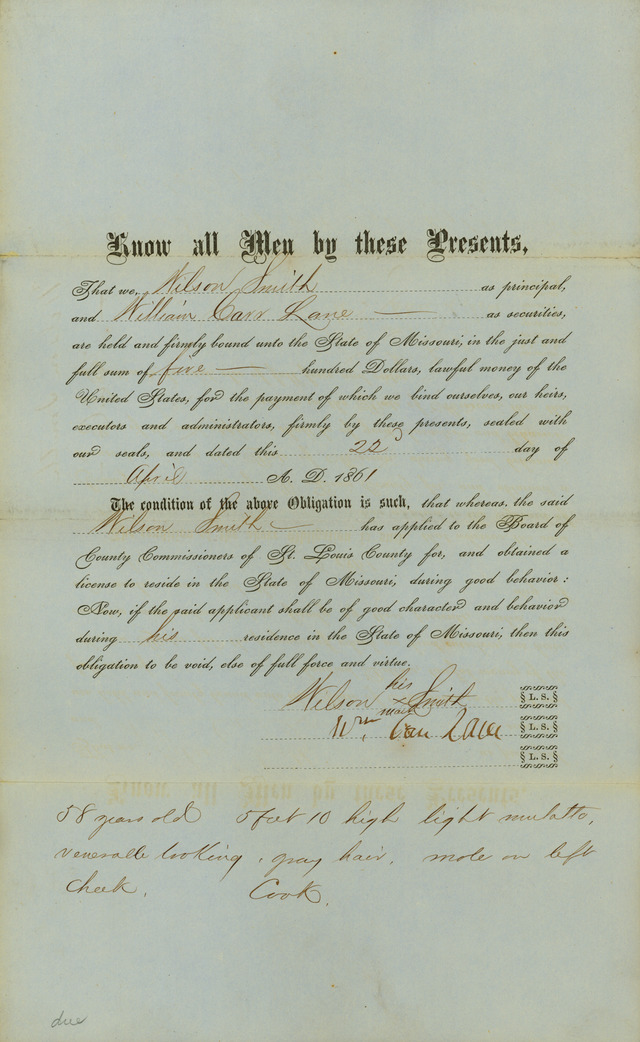 Know all Men by these Presents,
That we, Wilson Smith as principal,
and William Carr Lane — as securities,
are held and firmly bound unto the State of Missouri, in the just and
full sum of five — hundred Dollars, lawful money of the
United States, for the payment of which we bind ourselves, our heirs,
executors and administrators, firmly by these presents, sealed with
our seals, and dated this 22d day of
April A. D. 1861
The condition of the above Obligation is such, that whereas, the said
Wilson Smith has applied to the Board of
County Commissioners of St. Louis County for, and obtained a
license to reside in the State of Missouri, during good behavior:
Now, if the said applicant shall be of good character and behavior
during his residence in the State of Missouri, then this
obligation to be void, else of full force and virtue.
his
Wilson x Smith L. S.
mark
Wm. Carr Lane L. S.
L. S.
58 years old 5 feet 10 high light mulatto,
venerable looking, gray hair, mole on left
cheek. Cook.
due